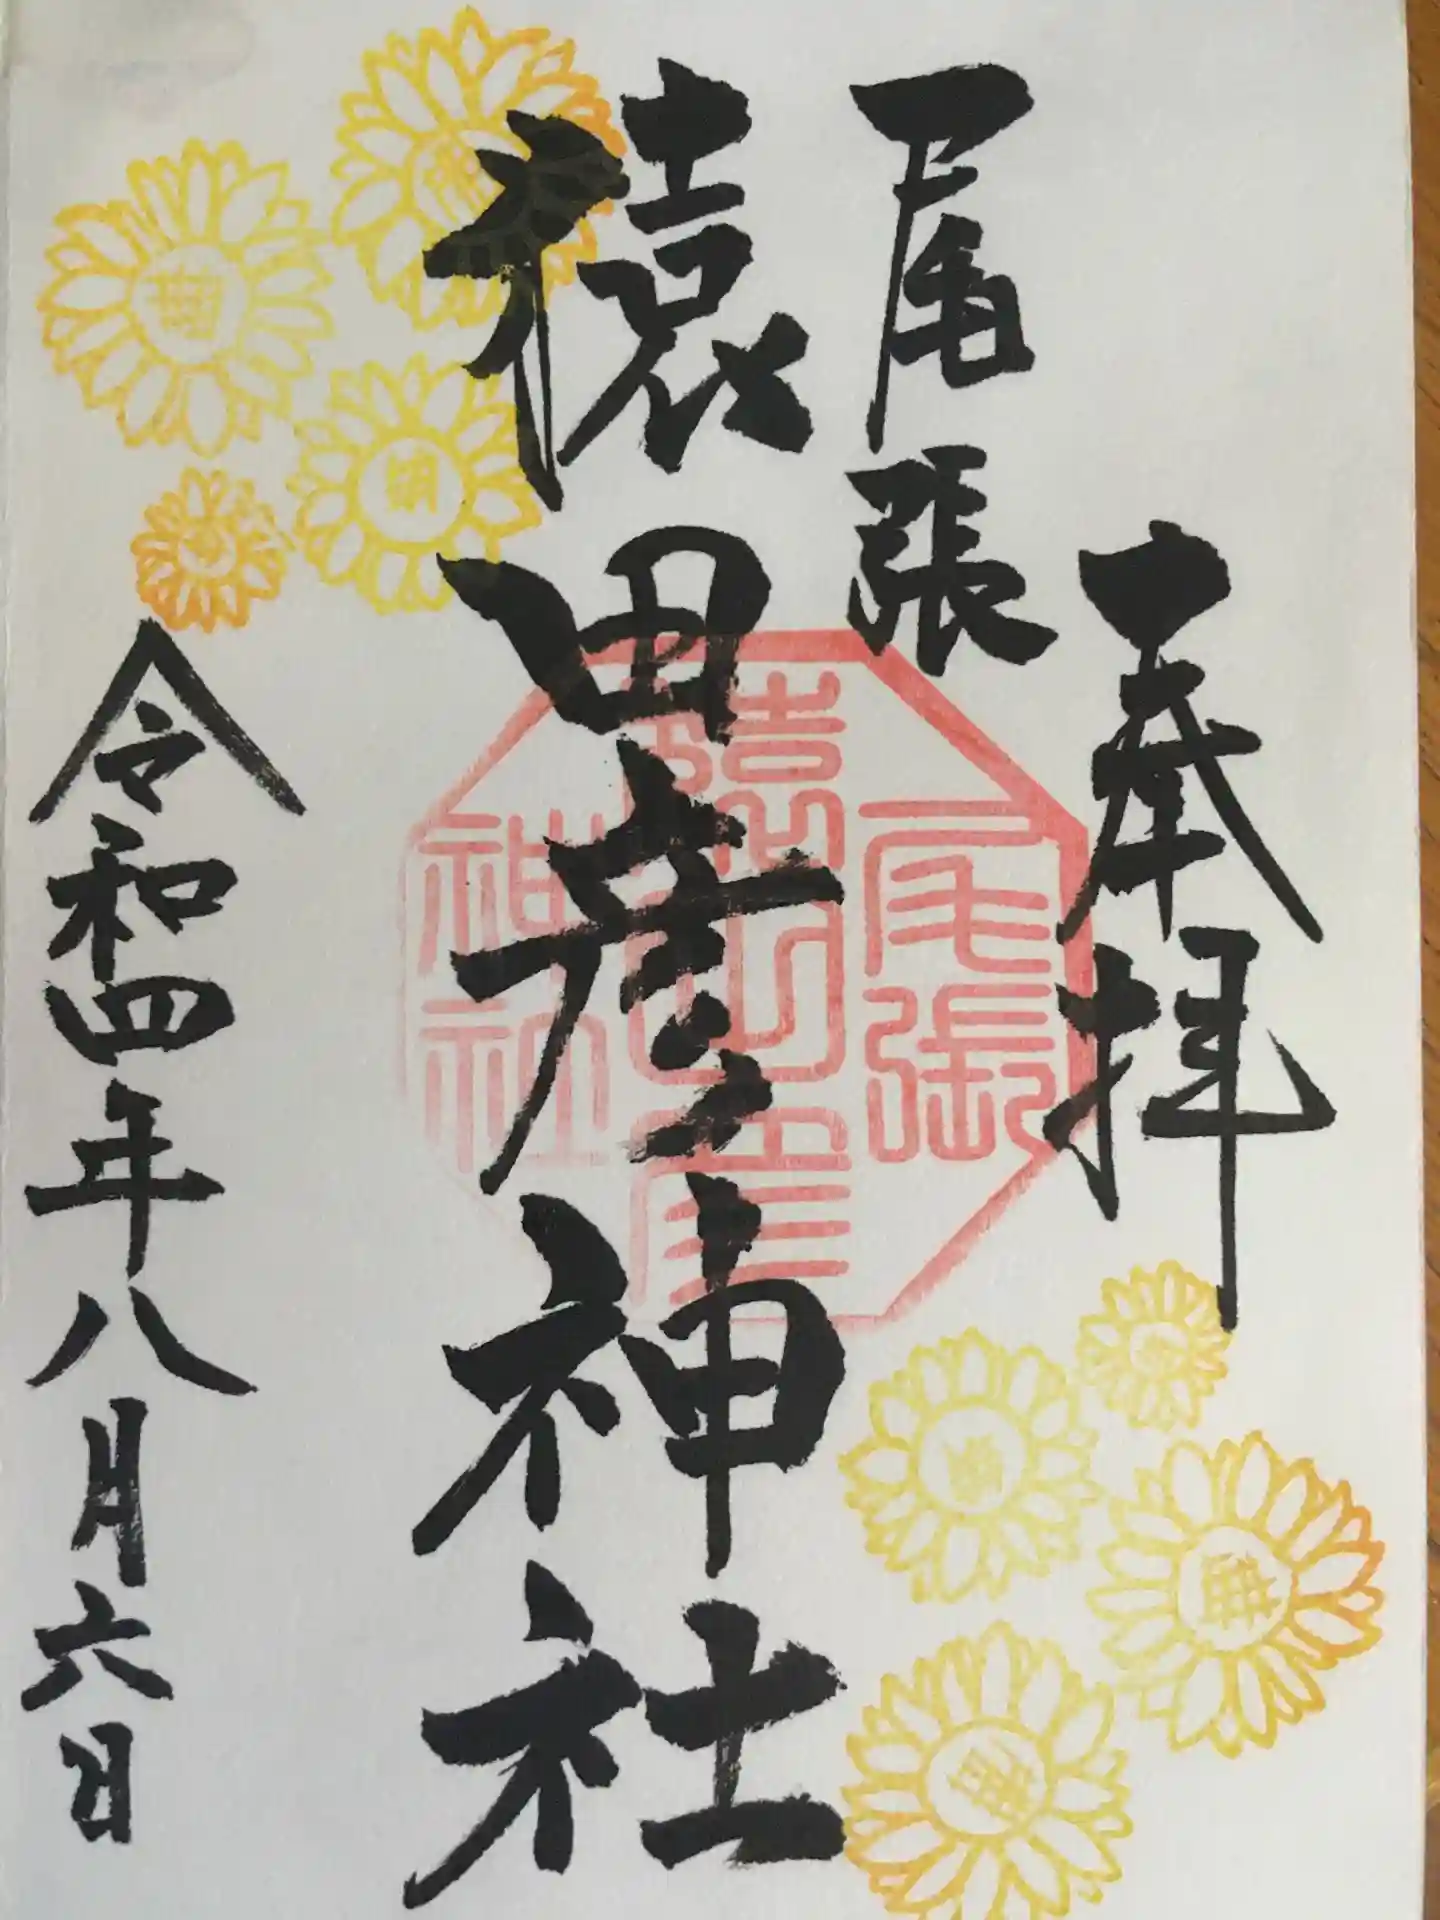 奉拝
尾張
猿田彦神社
尾張
神社
令和四年八月六日